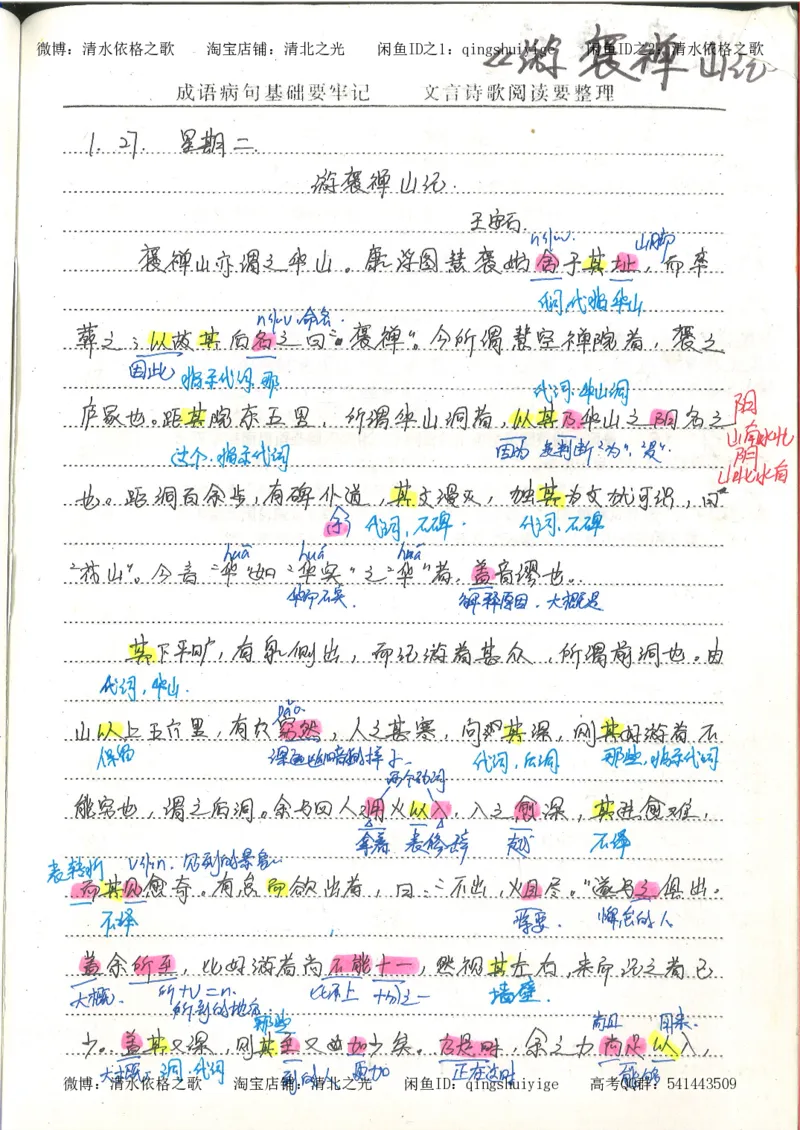 微博：清水依格之歌 淘宝店铺：清北之光 闲鱼ID之1：qingshuiyige 闲鱼ID之2：清水依格之歌
《游褒禅山记
成语病句基础要牢记 文言诗歌阅读要整理
1.27. 星期二.
游褒禅山记.
王安石.
n活v. 山脚
褒禅山亦谓之华山。唐浮图慧褒始舍于其址，而卒
代词,代指华山
n活v.命名.
葬之；以故其后名之曰“褒禅”。今所谓慧空禅院者，褒之
因此 指示代词,那
代词.华山洞
庐冢也。距其院东五里，所谓华山洞者，以其乃华山之阳名之
阳
山南水北
阴
山北水南
这个.指示代词 因为 表判断“为”，“是”.
也。距洞百余步，有碑仆道，其文漫灭，独其为文犹可识，曰
代词,石碑. 代词,石碑
huā huá huā
“花山”。今言“华”如“华实”之“华”者，盖音谬也。
华而不实. 解释原因.大概是
其下平旷，有泉侧出，而记游者甚众，所谓前洞也。由
代词,华山.
yǎo.
山以上五六里，有穴窈然，入之甚寒，问其深，则其好游者不
深远幽暗的样子 代词,后洞 那些,指示代词
两个动词
能穷也，谓之后洞。余与四人拥火以入，入之愈深，其进愈难，
拿着 表修饰 越 不译
表转折 v活n.见到的景象
而其见愈奇。有怠而欲出者，曰：“不出，火且尽。”遂与之俱出。
不译 将要. 懈怠的人
盖余所至，比好游者尚不能十一，然视其左右，来而记之者已
大概. 所+v=n. 所到的地方 比不上 十分之一 墙壁.
那些 尚且 用来.
少。盖其又深，则其至又加少矣。方是时，余之力尚足以入，
大概 洞,代词 到的人 更加 正在这时 能够
微博：清水依格之歌 淘宝店铺：清北之光 闲鱼ID：qingshuiyige 高考QQ群：541443509